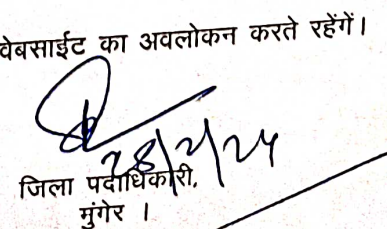 वेबसाईट का अवलोकन करते रहेंगें।
28/2/24
जिला पदाधिकारी,
मुंगेर ।